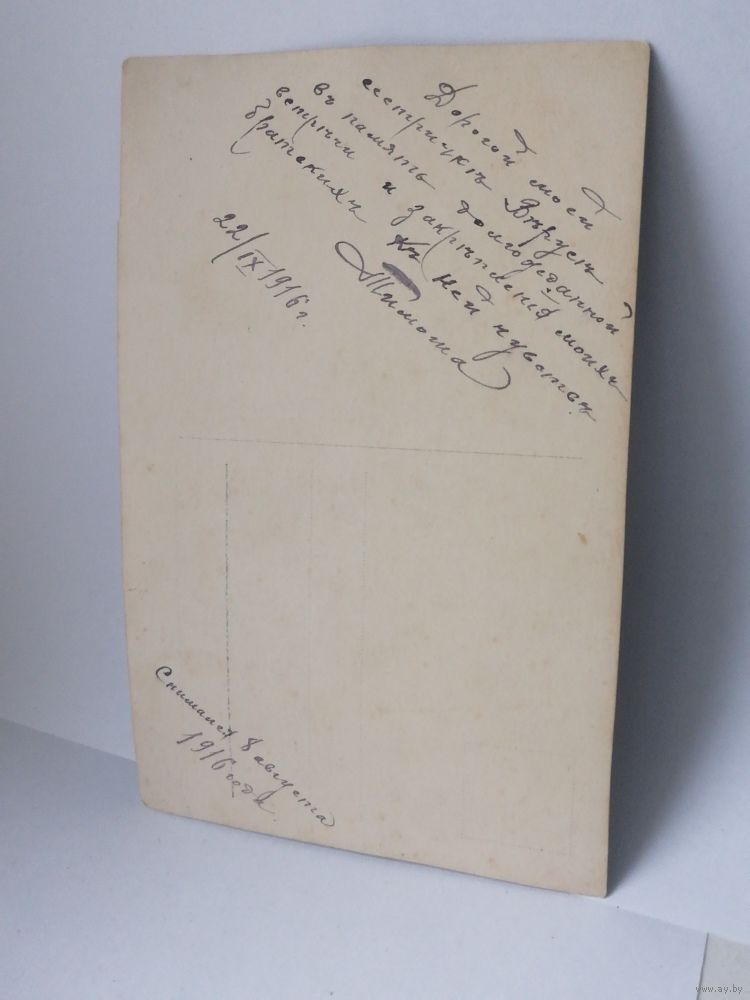 Дорогой моей
сестричкѣ Вѣрусѣ
въ память долгожданной
встрѣчи и закрѣпленія моихъ
братскихъ къ ней чувствъ.
Тимоша
22/IX 1916 г.
Снимался 8 августа
1916 года
www.ay.by